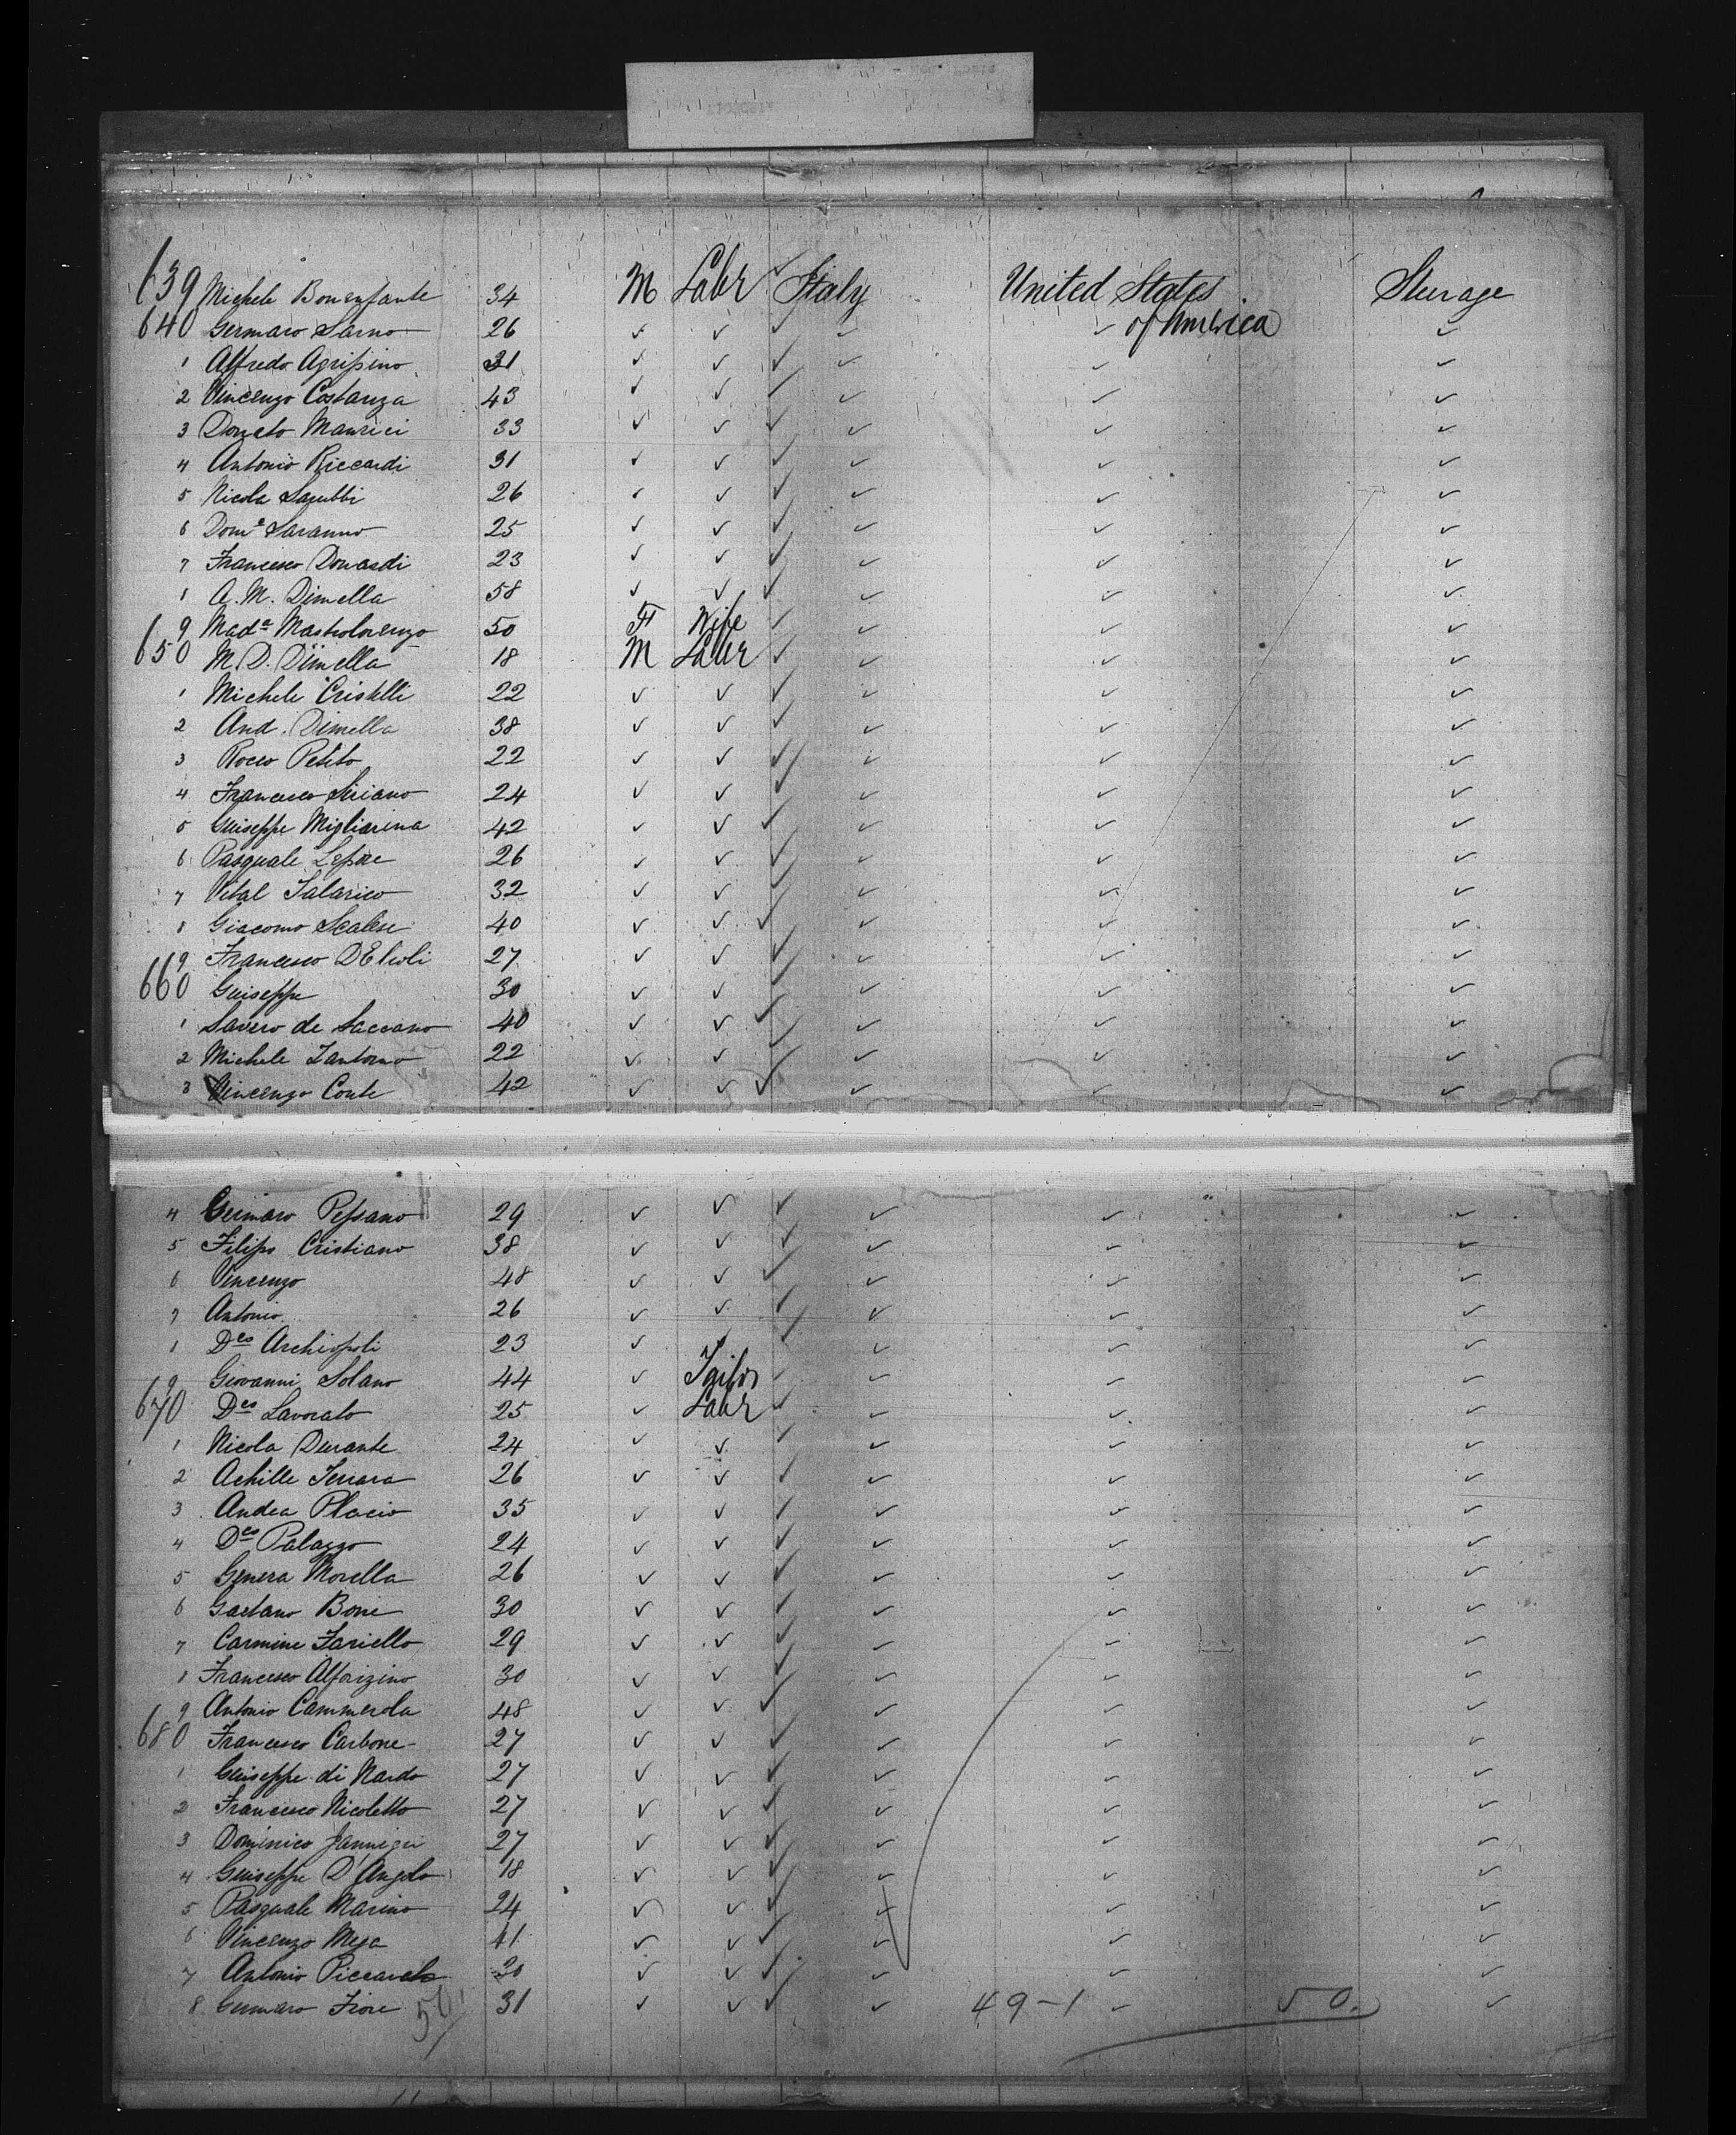 639 Michele Bonenfante 34 M Labr ✓ Italy United States Steerage
640 Gennaro Sarno 26 ✓ ✓ ✓ ✓ ✓ of America ✓
1 Alfredo Agrissino 31 ✓ ✓ ✓ ✓ ✓ ✓
2 Vincenzo Costanza 43 ✓ ✓ ✓ ✓ ✓ ✓
3 Donato Maurici 33 ✓ ✓ ✓ ✓ ✓ ✓
4 Antonio Riccardi 31 ✓ ✓ ✓ ✓ ✓ ✓
5 Nicola 26 ✓ ✓ ✓ ✓ ✓ ✓
6 Dome Saranno 25 ✓ ✓ ✓ ✓ ✓ ✓
7 Francesco Donardi 23 ✓ ✓ ✓ ✓ ✓ ✓
8 A. M. Dimella 58 ✓ ✓ ✓ ✓ ✓ ✓
9 Mada Mastrolorenzo 50 F Wife ✓ ✓ ✓ ✓
650 M. D. Dimella 18 M Labr ✓ ✓ ✓ ✓
1 Michele Cristelli 22 ✓ ✓ ✓ ✓ ✓ ✓
2 And. Dimella 38 ✓ ✓ ✓ ✓ ✓ ✓
3 Rocco Petito 22 ✓ ✓ ✓ ✓ ✓ ✓
4 Francesco Siriano 24 ✓ ✓ ✓ ✓ ✓ ✓
5 Guiseppe Migliarina 42 ✓ ✓ ✓ ✓ ✓ ✓
6 Pasquale Lepore 26 ✓ ✓ ✓ ✓ ✓ ✓
7 Vital Talarico 32 ✓ ✓ ✓ ✓ ✓ ✓
8 Giacomo Scalese 40 ✓ ✓ ✓ ✓ ✓ ✓
9 Francesco 27 ✓ ✓ ✓ ✓ ✓ ✓
660 Guiseppe 30 ✓ ✓ ✓ ✓ ✓ ✓
1 Savero de Saccano 40 ✓ ✓ ✓ ✓ ✓ ✓
2 Michele Zantorno 22 ✓ ✓ ✓ ✓ ✓ ✓
3 Vincenzo Conte 42 ✓ ✓ ✓ ✓ ✓ ✓
4 Gennaro Pessano 29 ✓ ✓ ✓ ✓ ✓ ✓
5 Filipo Cristiano 38 ✓ ✓ ✓ ✓ ✓ ✓
6 Vincenzo 48 ✓ ✓ ✓ ✓ ✓ ✓
7 Antonio 26 ✓ ✓ ✓ ✓ ✓ ✓
8 Dco Archiopoli 23 ✓ ✓ ✓ ✓ ✓ ✓
9 Giovanni Solano 44 ✓ Tailor ✓ ✓ ✓ ✓
670 Dco Lavorato 25 ✓ Labr ✓ ✓ ✓ ✓
1 Nicola Durante 24 ✓ ✓ ✓ ✓ ✓ ✓
2 Achille Ferrara 26 ✓ ✓ ✓ ✓ ✓ ✓
3 Andea Placio 35 ✓ ✓ ✓ ✓ ✓ ✓
4 Dco Palazzo 24 ✓ ✓ ✓ ✓ ✓ ✓
5 Genera Morella 26 ✓ ✓ ✓ ✓ ✓ ✓
6 Gaetano Bone 30 ✓ ✓ ✓ ✓ ✓ ✓
7 Carmine Fariello 29 ✓ ✓ ✓ ✓ ✓ ✓
8 Francesco Alforizino 30 ✓ ✓ ✓ ✓ ✓ ✓
9 Antonio Cammerola 48 ✓ ✓ ✓ ✓ ✓ ✓
680 Francesco Carbone 27 ✓ ✓ ✓ ✓ ✓ ✓
1 Guiseppe di Nardo 27 ✓ ✓ ✓ ✓ ✓ ✓
2 Francesco Nicoletto 27 ✓ ✓ ✓ ✓ ✓ ✓
3 Dominico 27 ✓ ✓ ✓ ✓ ✓ ✓
4 Guiseppe D'Angelo 18 ✓ ✓ ✓ ✓ ✓ ✓
5 Pasquale Marino 24 ✓ ✓ ✓ ✓ ✓ ✓
6 Vincenzo Mega 41 ✓ ✓ ✓ ✓ ✓ ✓
7 Antonio 30 ✓ ✓ ✓ ✓ ✓ ✓
8 Gennaro Fiore 50/ 31 ✓ ✓ ✓ ✓ 49-1 ✓ 50. ✓